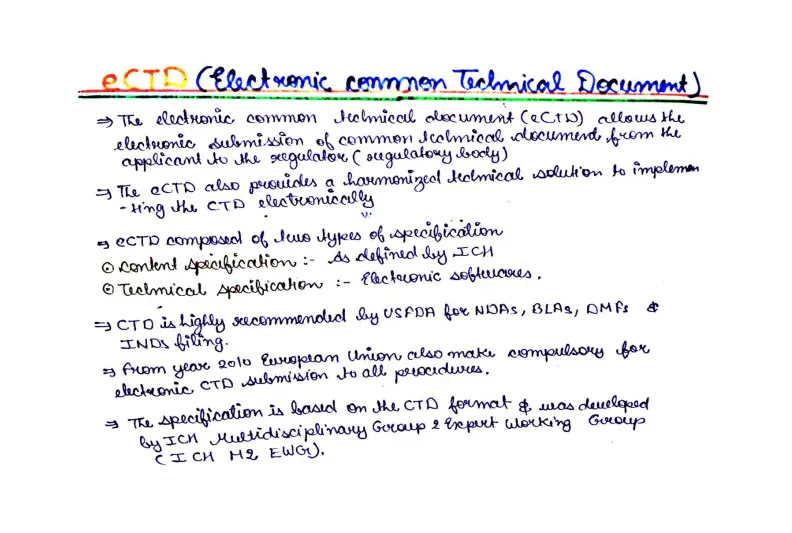 eCTD (Electronic common Technical Document)
⇒ The electronic common technical document (eCTD) allows the
electronic submission of common technical document from the
applicant to the regulator (regulatory body)
⇒ The eCTD also provides a harmonized technical solution to implemen
-ting the CTD electronically
⇒ eCTD composed of two types of specification
⊙ content specification :- As defined by ICH
⊙ Technical specification :- Electronic softwares.
⇒ CTD is highly recommended by USFDA for NDAs, BLAs, DMFs &
INDs filing.
⇒ From year 2010 European Union also make compulsory for
electronic CTD submission to all procedures.
⇒ The specification is based on the CTD format & was developed
by ICH Multidisciplinary Group 2 Expert Working Group
(ICH M2 EWG).